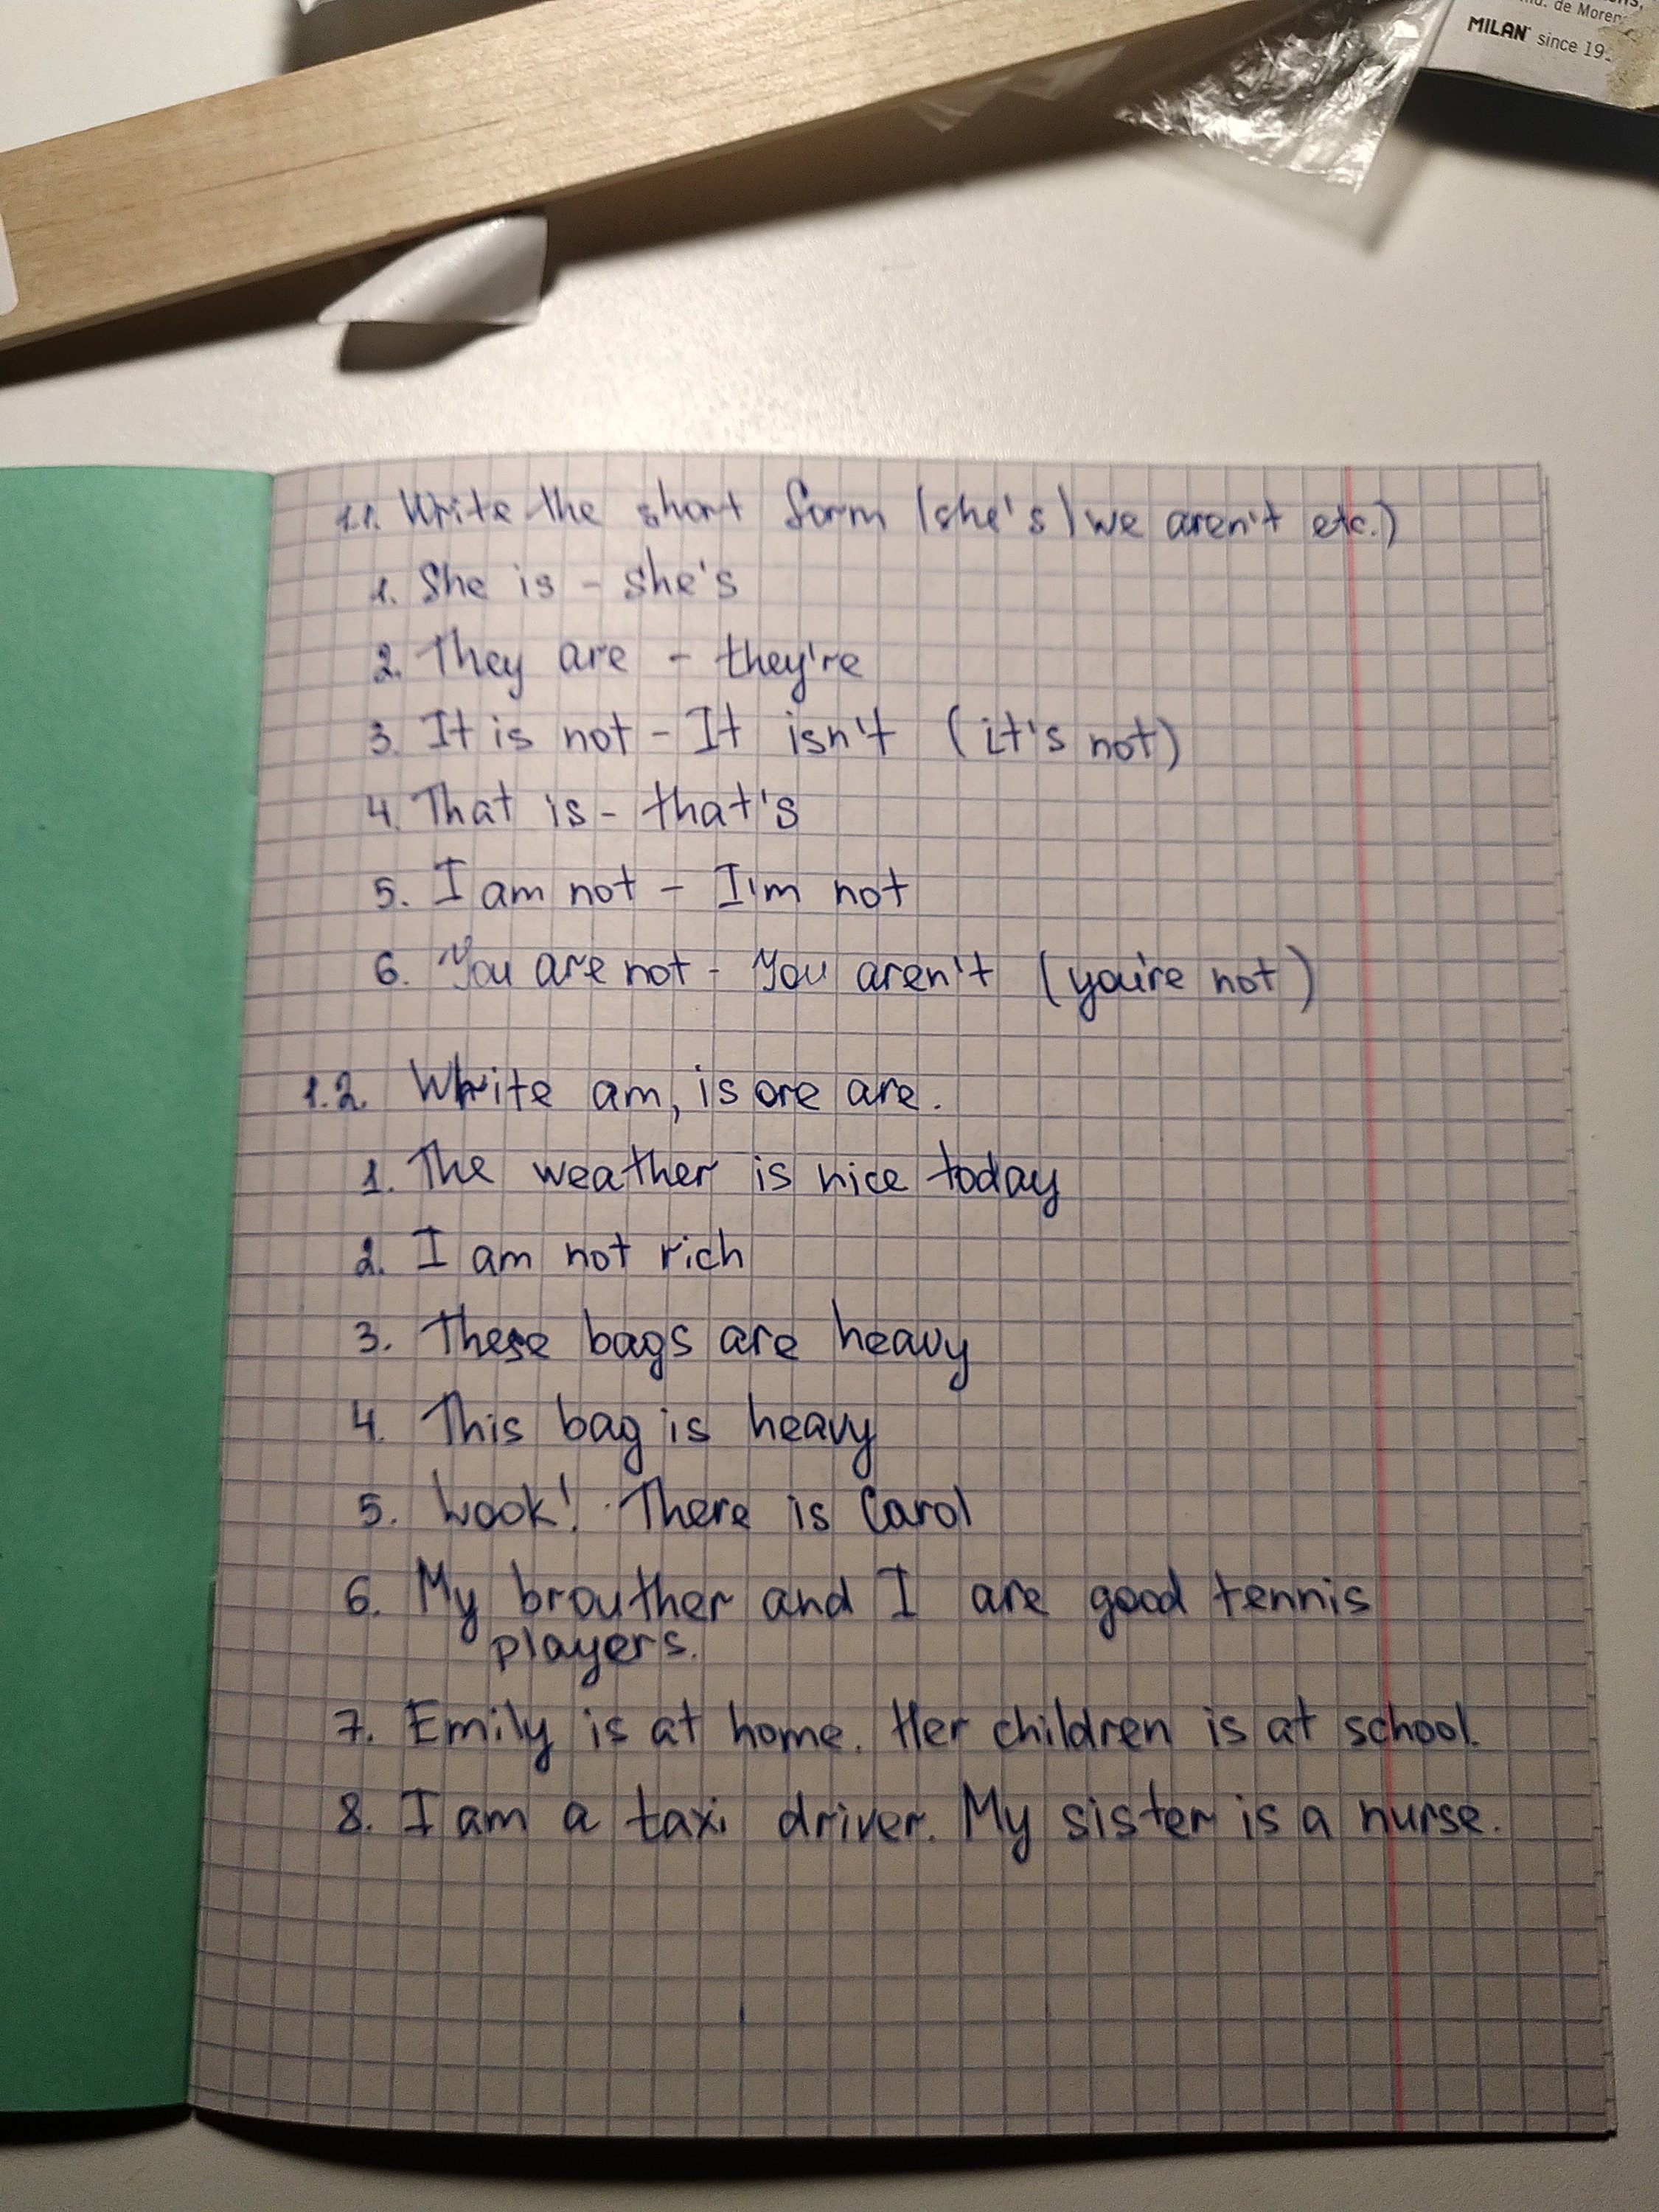 ind. de Moren
MILAN since 19
1.1. Write the short form (she's) we aren't etc.)
1. She is - she's
2. They are - they're
3. It is not - It isn't (it's not)
4. That is - that's
5. I am not - I'm not
6. You are not - You aren't (you're not)
1.2. Write am, is ore are.
1. The weather is nice today
2. I am not rich
3. These bags are heavy
4. This bag is heavy
5. Look! There is Carol
6. My brouther and I are good tennis
players.
7. Emily is at home. Her children is at school.
8. I am a taxi driver. My sister is a nurse.